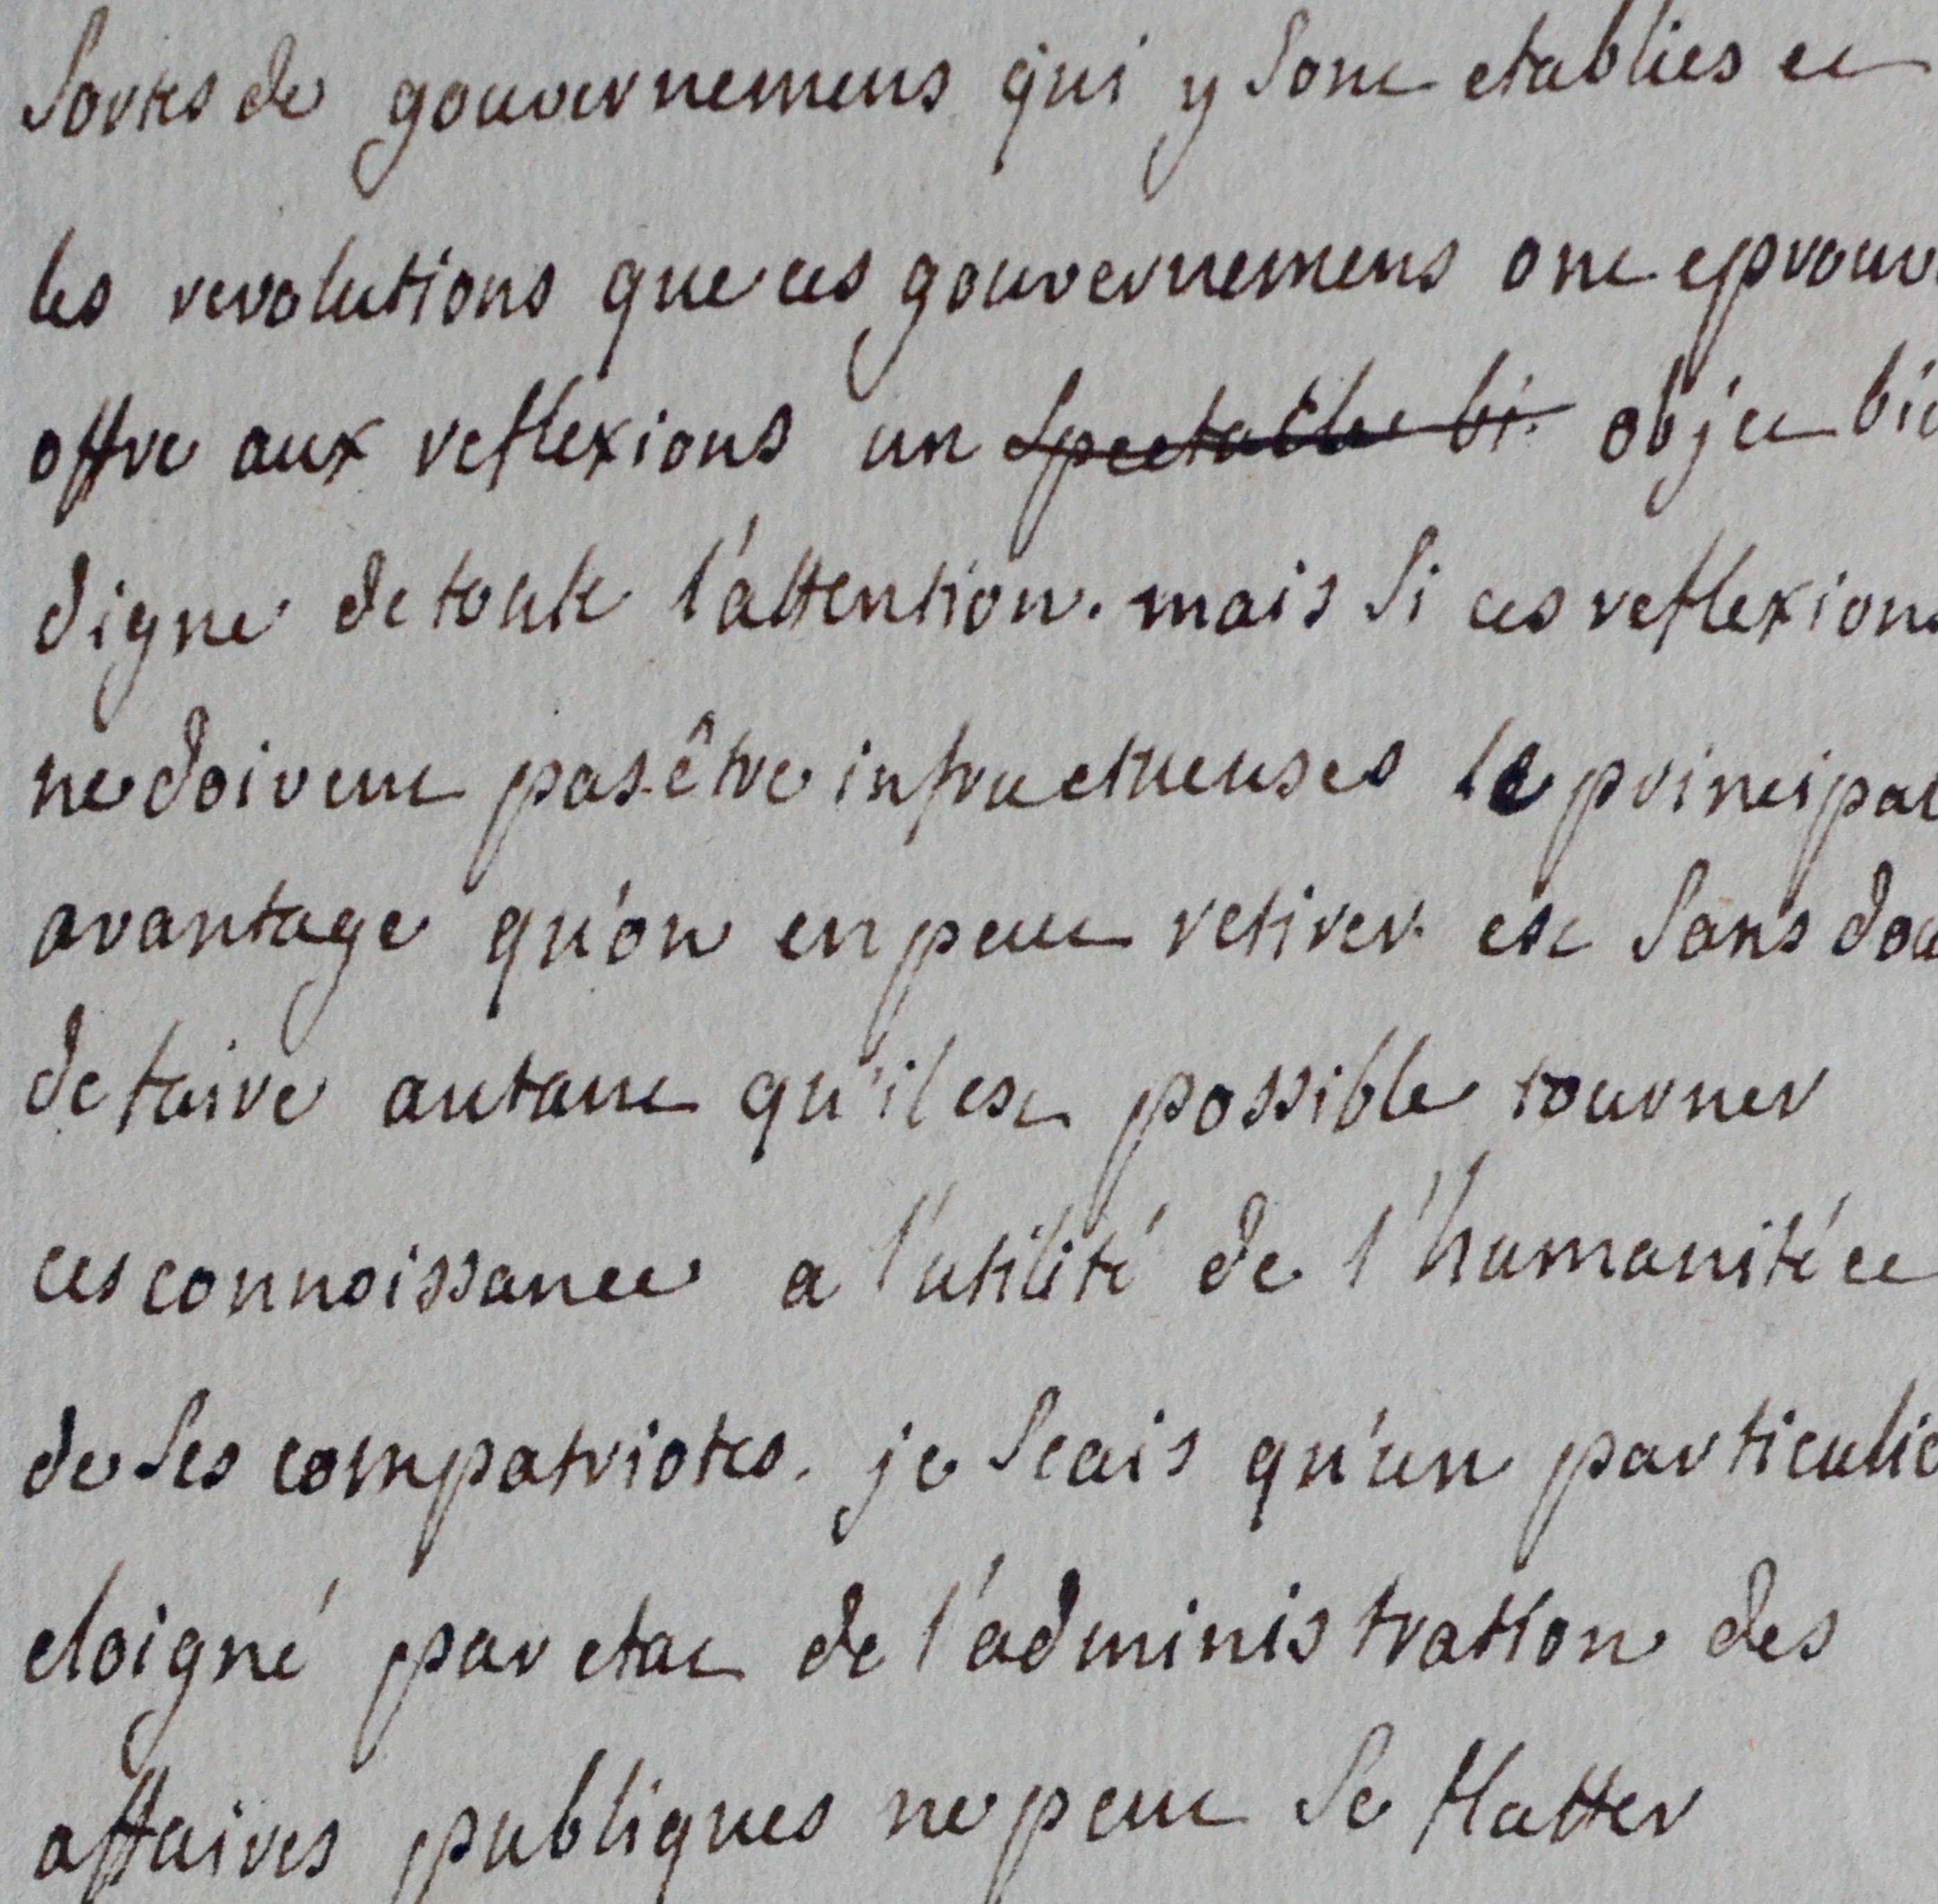 sortes de gouvernemens qui y sont etablies et
les revolutions que ces gouvernemens ont eprouv
offre aux reflexions un spectacle bi objet bie
digne de toute l'attention. mais si ces reflexions
ne doivent pas être infructueuses le principal
avantage qu'on en peut retirer est sans dou
de faire autant qu'il est possible tourner
ces connoissance a l'utilité de l'humanité et
de ses compatriotes. je scais qu'un particulie
eloigné par etat de l'administration des
affaires publiques ne peut se flatter